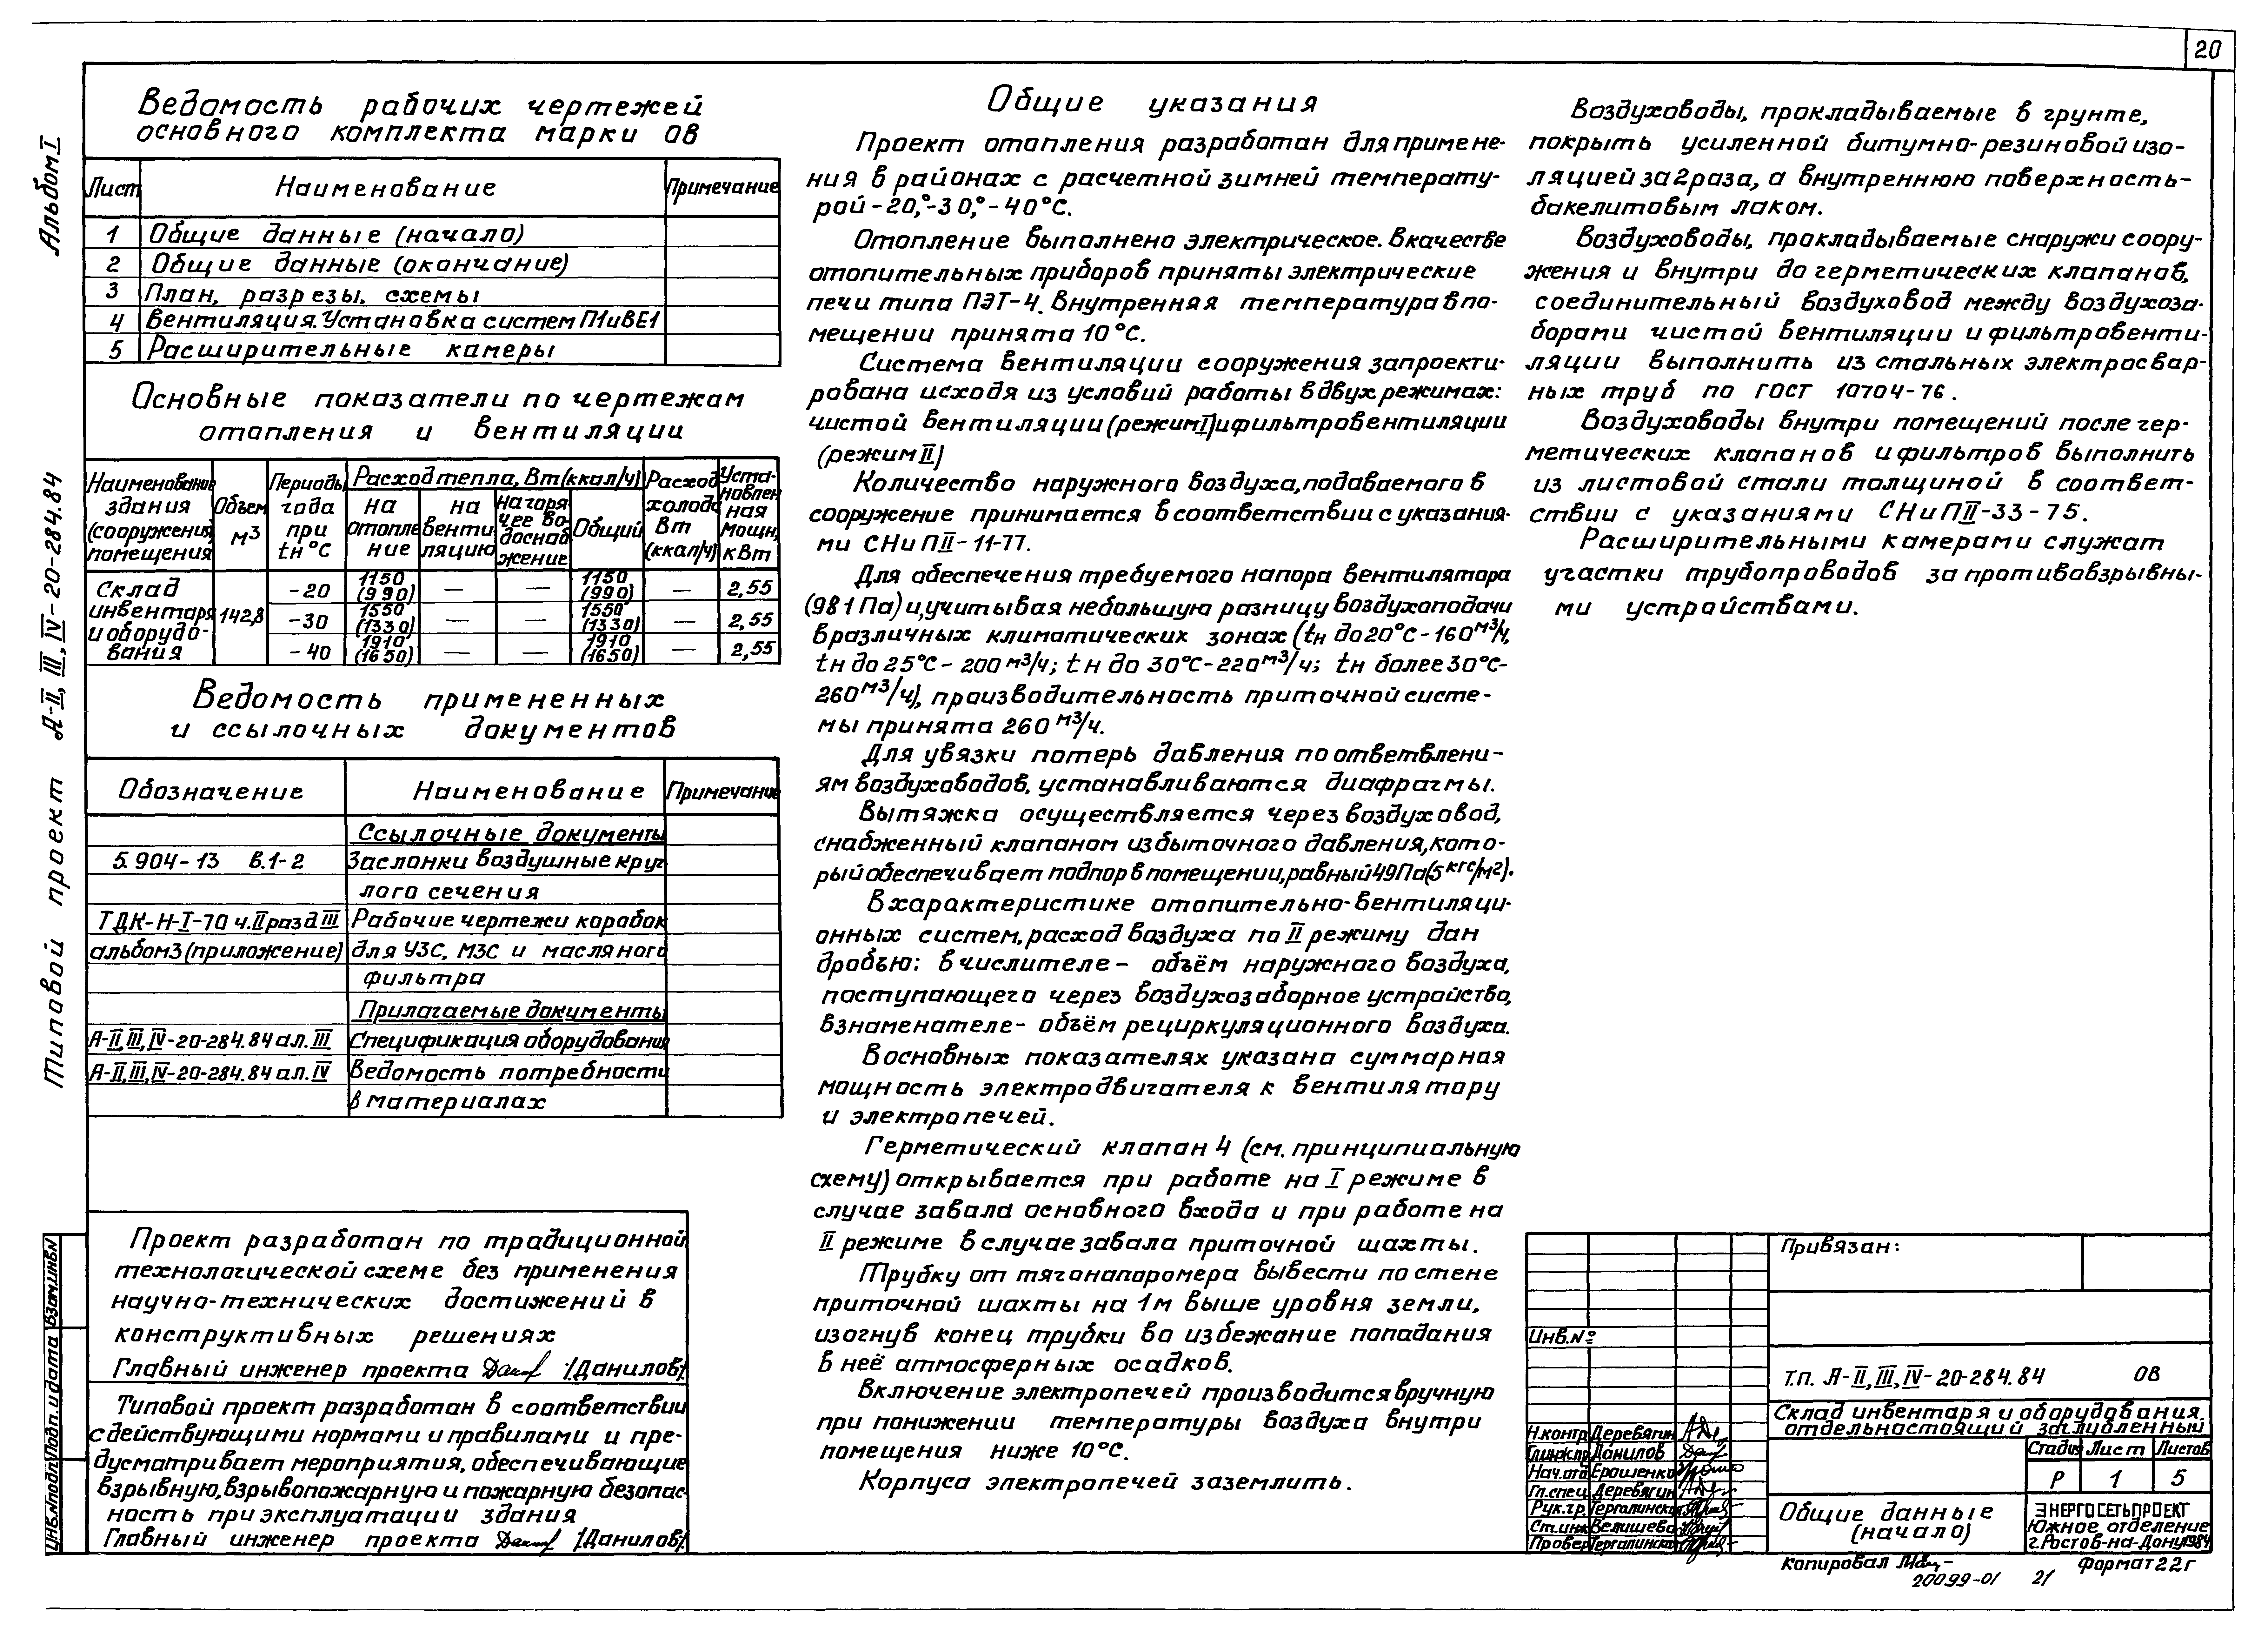 20
Альбом I
Типовой проект А-II, III, IV-20-284.84
Ведомость рабочих чертежей
основного комплекта марки ОВ
Лист Наименование Примечание
1 Общие данные (начало)
2 Общие данные (окончание)
3 План, разрезы, схемы
4 Вентиляция. Установка систем П1 и ВЕ1
5 Расширительные камеры
Основные показатели по чертежам
отопления и вентиляции
Наименование здания (сооружения), помещения
Объем м3
Периоды года при tн °С
Расход тепла, Вт (ккал/ч)
на отопление
на вентиляцию
на горячее водоснабжение
Общий
Расход холода Вт (ккал/ч)
Установленная мощн, кВт
Склад инвентаря и оборудования 142,8
-20 1150 (990) — — 1150 (990) — 2,55
-30 1550 (1330) — — 1550 (1330) — 2,55
-40 1910 (1650) — — 1910 (1650) — 2,55
Ведомость примененных
и ссылочных документов
Обозначение Наименование Примечание
Ссылочные документы
5.904-13 В.1-2 Заслонки воздушные круг-
лого сечения
ТДК-Н-I-70 ч.II разд III Рабочие чертежи коробок
альбом 3 (приложение) для УЗС, МЗС и масляного
фильтра
Прилагаемые документы
А-II,III,IV-20-284.84 ал. III Спецификация оборудования
А-II,III,IV-20-284.84 ал. IV Ведомость потребности
в материалах
Проект разработан по традиционной
технологической схеме без применения
научно-технических достижений в
конструктивных решениях
Главный инженер проекта /Данилов/
Типовой проект разработан в соответствии
с действующими нормами и правилами и пре-
дусматривает мероприятия, обеспечивающие
взрывную, взрывопожарную и пожарную безопас-
ность при эксплуатации здания
Главный инженер проекта /Данилов/
Инв.№подл Подп. и дата Взам.инв.N
Общие указания
Проект отопления разработан для примене-
ния в районах с расчетной зимней температу-
рой -20,°-30,°-40°С.
Отопление выполнено электрическое. В качестве
отопительных приборов приняты электрические
печи типа ПЭТ-4. Внутренняя температура в по-
мещении принята 10°С.
Система вентиляции сооружения запроекти-
рована исходя из условий работы в двух режимах:
чистой вентиляции (режим I) и фильтровентиляции
(режим II)
Количество наружного воздуха, подаваемого в
сооружение принимается в соответствии с указания-
ми СНиП II-11-77.
Для обеспечения требуемого напора вентилятора
(981 Па) и, учитывая небольшую разницу воздухоподачи
в различных климатических зонах (tн до 20°С-160 м3/ч,
tн до 25°С - 200 м3/ч; tн до 30°С-220 м3/ч; tн более 30°С-
260 м3/ч), производительность приточной систе-
мы принята 260 м3/ч.
Для увязки потерь давления по ответвлени-
ям воздуховодов, устанавливаются диафрагмы.
Вытяжка осуществляется через воздуховод,
снабженный клапаном избыточного давления, кото-
рый обеспечивает подпор в помещении, равный 49 Па (5 кгс/м2).
В характеристике отопительно-вентиляци-
онных систем, расход воздуха по II режиму дан
дробью: в числителе - объём наружного воздуха,
поступающего через воздухозаборное устройство,
в знаменателе - объём рециркуляционного воздуха.
В основных показателях указана суммарная
мощность электродвигателя к вентилятору
и электропечей.
Герметический клапан 4 (см. принципиальную
схему) открывается при работе на I режиме в
случае завала основного входа и при работе на
II режиме в случае завала приточной шахты.
Трубку от тягонапоромера вывести по стене
приточной шахты на 1м выше уровня земли,
изогнув конец трубки во избежание попадания
в неё атмосферных осадков.
Включение электропечей производится вручную
при понижении температуры воздуха внутри
помещения ниже 10°С.
Корпуса электропечей заземлить.
Воздуховоды, прокладываемые в грунте,
покрыть усиленной битумно-резиновой изо-
ляцией за 2 раза, а внутреннюю поверхность -
бакелитовым лаком.
Воздуховоды, прокладываемые снаружи соору-
жения и внутри до герметических клапанов,
соединительный воздуховод между воздухоза-
борами чистой вентиляции и фильтровенти-
ляции выполнить из стальных электросвар-
ных труб по ГОСТ 10704-76.
Воздуховоды внутри помещений после гер-
метических клапанов и фильтров выполнить
из листовой стали толщиной в соответ-
ствии с указаниями СНиП II-33-75.
Расширительными камерами служат
участки трубопроводов за противовзрывны-
ми устройствами.
Привязан:
Инв.№
Т.п. А-II,III,IV-20-284.84 ОВ
Склад инвентаря и оборудования,
отдельностоящий заглубленный
Н.контр. Деревягин
Гл.инж.пр. Данилов
Нач.отд. Ерошенко
Гл.спец. Деревягин
Рук.гр. Тергалинская
Ст.инж. Велишева
Провер. Тергалинская
Стадия Лист Листов
Р 1 5
Общие данные
(начало)
ЭНЕРГОСЕТЬПРОЕКТ
Южное отделение
г.Ростов-на-Дону 1984
Копировал
Формат 22г
20099-01 21